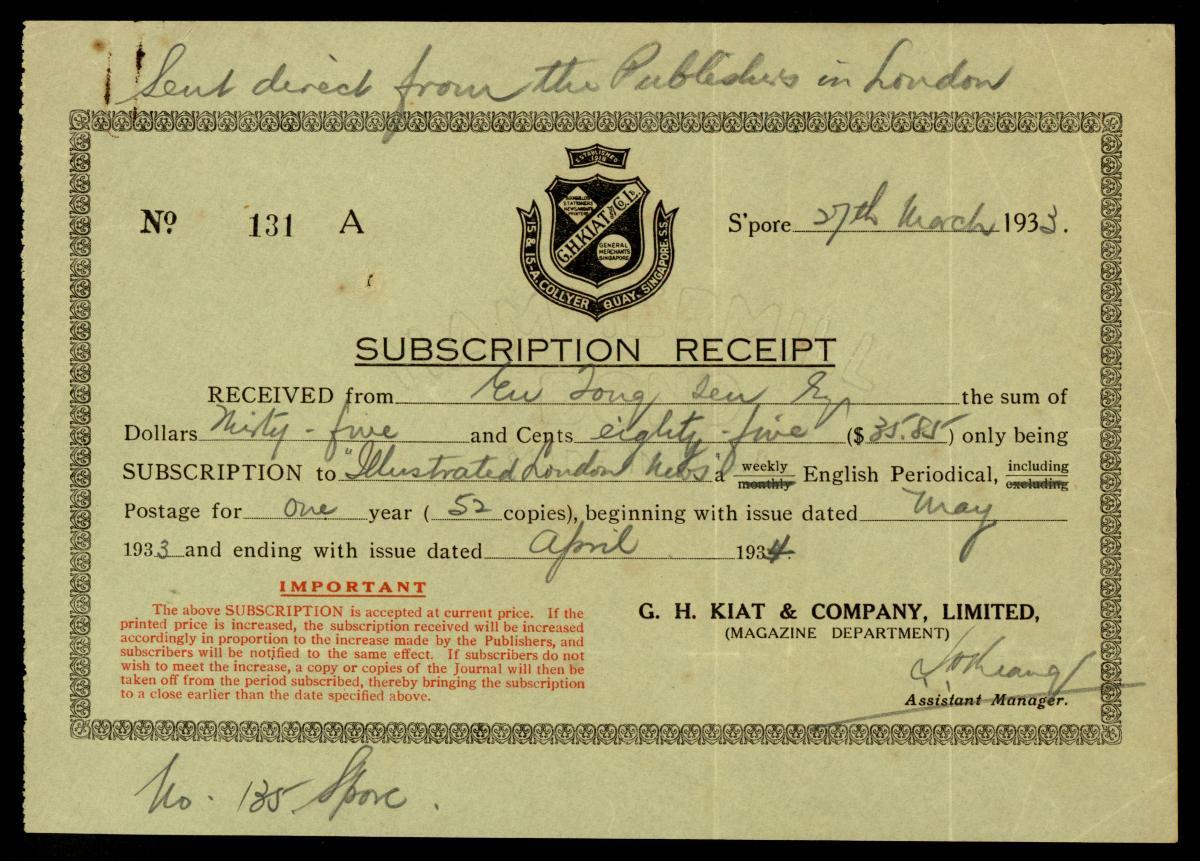 Sent direct from the Publishers in London
ESTABLISHED
1918
No 131 A
S'pore 27th March 1933.
BOOKSELLERS
STATIONERS
NEWSAGENTS
PRINTERS
G.H.KIAT & Co. Ld.
GENERAL
MERCHANTS
SINGAPORE
15 & 15-A. COLLYER QUAY. SINGAPORE. S.S.
SUBSCRIPTION RECEIPT
RECEIVED from Eu Tong Sen Esq. the sum of
Dollars Thirty-five and Cents eighty-five ($ 35.85) only being
SUBSCRIPTION to "Illustrated London News" a weekly monthly English Periodical, including excluding
Postage for one year ( 52 copies), beginning with issue dated May
1933 and ending with issue dated April 1934.
IMPORTANT
The above SUBSCRIPTION is accepted at current price. If the
printed price is increased, the subscription received will be increased
accordingly in proportion to the increase made by the Publishers, and
subscribers will be notified to the same effect. If subscribers do not
wish to meet the increase, a copy or copies of the Journal will then be
taken off from the period subscribed, thereby bringing the subscription
to a close earlier than the date specified above.
G. H. KIAT & COMPANY, LIMITED,
(MAGAZINE DEPARTMENT)
Assistant Manager.
No. 135 Spore.